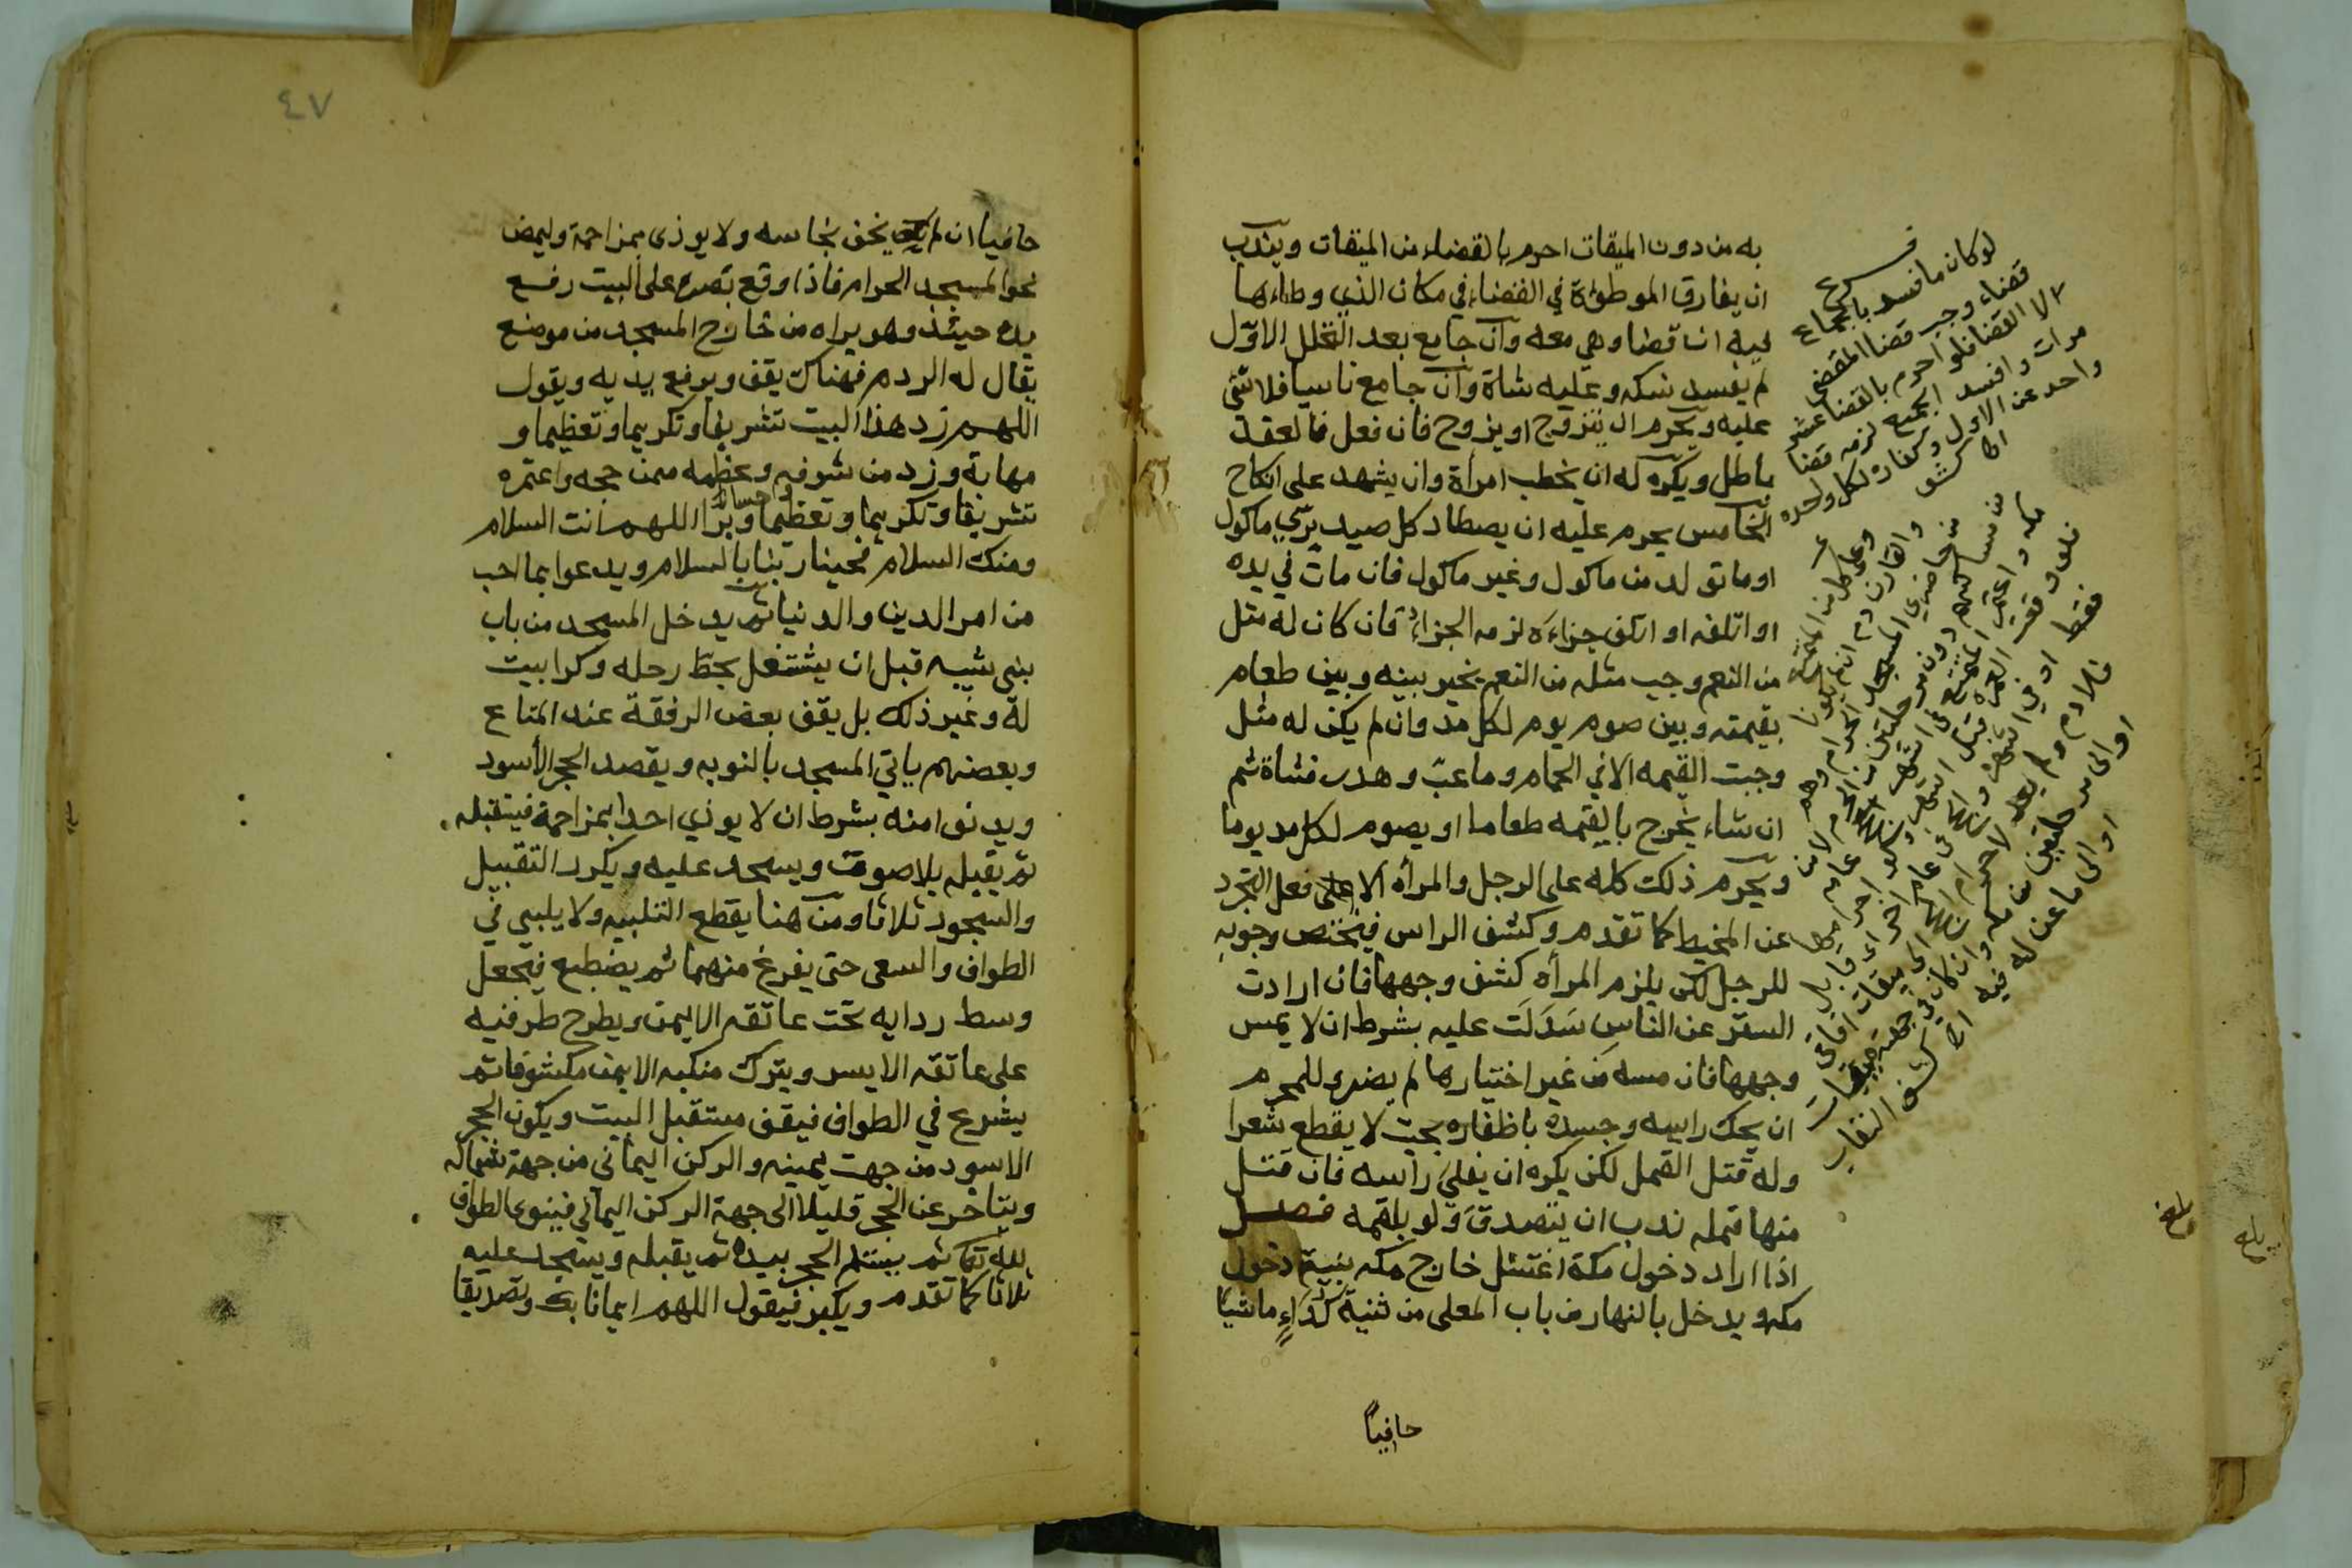 به من دون الميقات احرم بالقضاء من الميقات ويندب
ان يفارق الموطؤة في القضاء في مكان الذي وطاءها
فيه ان قضا وهي معه وان جامع بعد التحلل الاول
لم يفسد نسكه وعليه شاة وان جامع ناسيا فلا شئ
عليه ويحرم ان يتزوج او يزوج فان فعل فالعقد
باطل ويكره له ان يخطب امراة وان يشهد على انكاح
الخامس يحرم عليه ان يصطاد كل صيد بري ماكول
او ما تولد من ماكول وغير ماكول فان مات في يده
او اتلفه او اتلف جزاءه لزمه الجزاء فان كان له مثل
من النعم وجب مثله من النعم يخير بينه وبين طعام
بقيمته وبين صوم يوم لكل مد وان لم يكن له مثل
وجبت القيمه الا في الحمام وما عب وهدر فشاة ثم
ان شاء يخرج بالقيمه طعاما او يصوم لكل مد يوما
ويحرم ذلك كله على الرجل والمرأه الا فعل التجرد
عن المخيط كما تقدم وكشف الراس فيختص وجوبه
للرجل لكن يلزم المرأه كشف وجهها فان ارادت
الستر عن الناس سدلت عليه بشرط ان لا يمس
وجهها فان مسه من غير اختيارها لم يضر وللمحرم
ان يحك راسه وجسده باظفاره بحيث لا يقطع شعرا
وله قتل القمل لكن يكره ان يفلي راسه فان قتل
منها قمله ندب ان يتصدق ولو بلقمه فصل
اذا اراد دخول مكة اغتسل خارج مكه بنية دخول
مكه ويدخل بالنهار من باب المعلى من ثنية كداء ماشيا
حافيا
فرع
لو كان ما افسد بالجماع
قضاء وجب قضا المقضي
لا القضا فلو احرم بالقضا عشر
مرات وافسد الجميع لزمه قضا
واحد عن الاول وكفاره لكل واحده
وعلى كل من المتمتع
والقارن دم ان لم يكونا
من حاضري المسجد الحرام وهم
من مساكنهم دون مرحلتين من الحرم
بلغ
٤٧
حافيا ان لم يخف نجاسه ولا يوذي بمزاحمة وليمض
نحو المسجد الحرام فاذا وقع بصره على البيت رفع
يده حينئذ وهو يراه من خارج المسجد من موضع
يقال له الردم فهناك يقف ويرفع يديه ويقول
اللهم زد هذا البيت تشريفا وتكريما وتعظيما و
مهابة وزد من شرفه وعظمه ممن حجه واعتمره
تشريفا وتكريما وتعظيما وبرا اللهم انت السلام
ومنك السلام فحينا ربنا بالسلام ويدعوا بما احب
من امر الدين والدنيا ثم يدخل المسجد من باب
بني شيبه قبل ان يشتغل بحط رحله وكرا بيت
له وغير ذلك بل يقف بعض الرفقة عند المتاع
وبعضهم ياتي المسجد بالنوبه ويقصد الحجر الأسود
ويدنو امنه بشرط ان لا يوذي احدا بمزاحمة فيستقبله
ثم يقبله بلا صوت ويسجد عليه ويكرر التقبيل
والسجود ثلاثا ومن هنا يقطع التلبيه ولا يلبي في
الطواف والسعى حتى يفرغ منهما ثم يضطبع فيجعل
وسط ردايه تحت عاتقه الايمن ويطرح طرفيه
على عاتقه الايسر ويترك منكبه الايمن مكشوفا ثم
يشرع في الطواف فيقف مستقبل البيت ويكون الحجر
الاسود من جهت يمينه والركن اليماني من جهة شماله
ويتاخر عن الحجر قليلا الى جهة الركن اليماني فينوي الطواف
لله تعالى ثم يستلم الحجر بيده ثم يقبله ويسجد عليه
ثلاثا كما تقدم ويكبر فيقول اللهم ايمانا بك وتصديقا